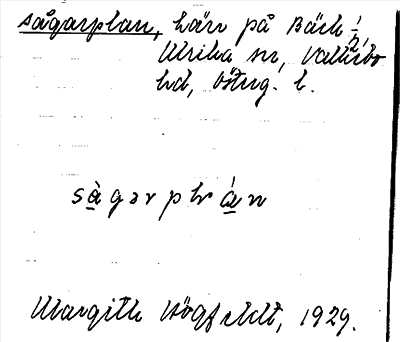 sågarplan, härr på Bäck ½,
Ulrika sn, Vallerbo
hd, Östrg. l.
sàgarplán
Margith Högfeldt, 1929.